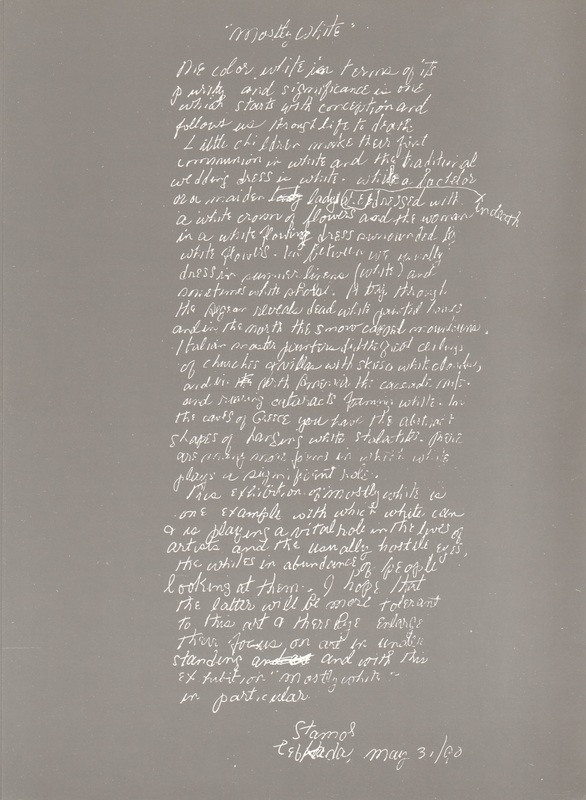 "Mostly White"
The color white in terms of its
purity and significance is one
which starts with conception and
follows us through life to death.
Little children make their first
communion in white and the traditional
wedding dress is white. while a bachelor
or a maiden lady is dressed with
a white crown of flowers and the woman in death
in a white flowing dress surrounded by
white flowers. In between we usually
dress in summer linens (white) and
sometimes white shoes. A trip through
the Aegean reveals dead white painted houses
and in the north the snow capped mountains.
Italian master painters the great ceilings
of churches & villas with skies white clouds,
and in North America the cascade
and cataracts foaming white. In
the caves of Greece you have the abstract
shapes of hanging white stalactites. There
are many more forms in which white
plays a significant role.
This exhibition of mostly white is
one example with which white can
& is playing a vital role in the lives of
artists and the usually hostile eyes,
the whites in abundance of people
looking at them. I hope that
the latter will be more tolerant
to this art & thereby enlarge
their focus on art in under
standing and with this
exhibition "mostly white"
in particular.
Stamos
Lefkada, May 31/90